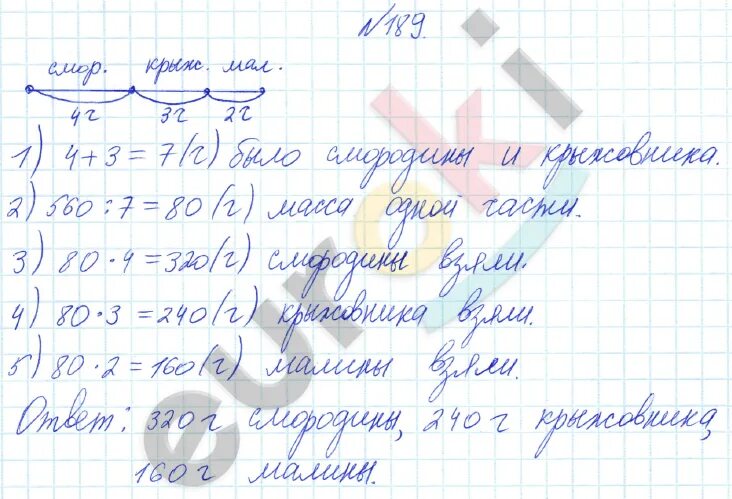 №189.
смор. крыж. мал.
4г 3г 2г
1) 4+3=7(г) было смородины и крыжовника.
2) 560:7=80(г) масса одной части.
3) 80·4=320(г) смородины взяли.
4) 80·3=240(г) крыжовника взяли.
5) 80·2=160(г) малины взяли.
Ответ: 320г смородины, 240г крыжовника,
160г малины.
euroki